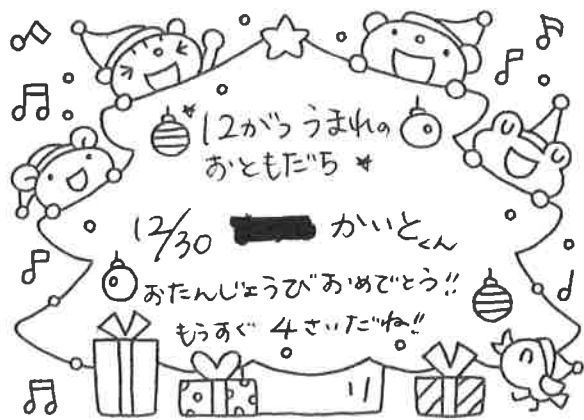 *12がつ うまれの
おともだち *
12/30 かいとくん
おたんじょうび おめでとう!!
もうすぐ 4さいだね!!